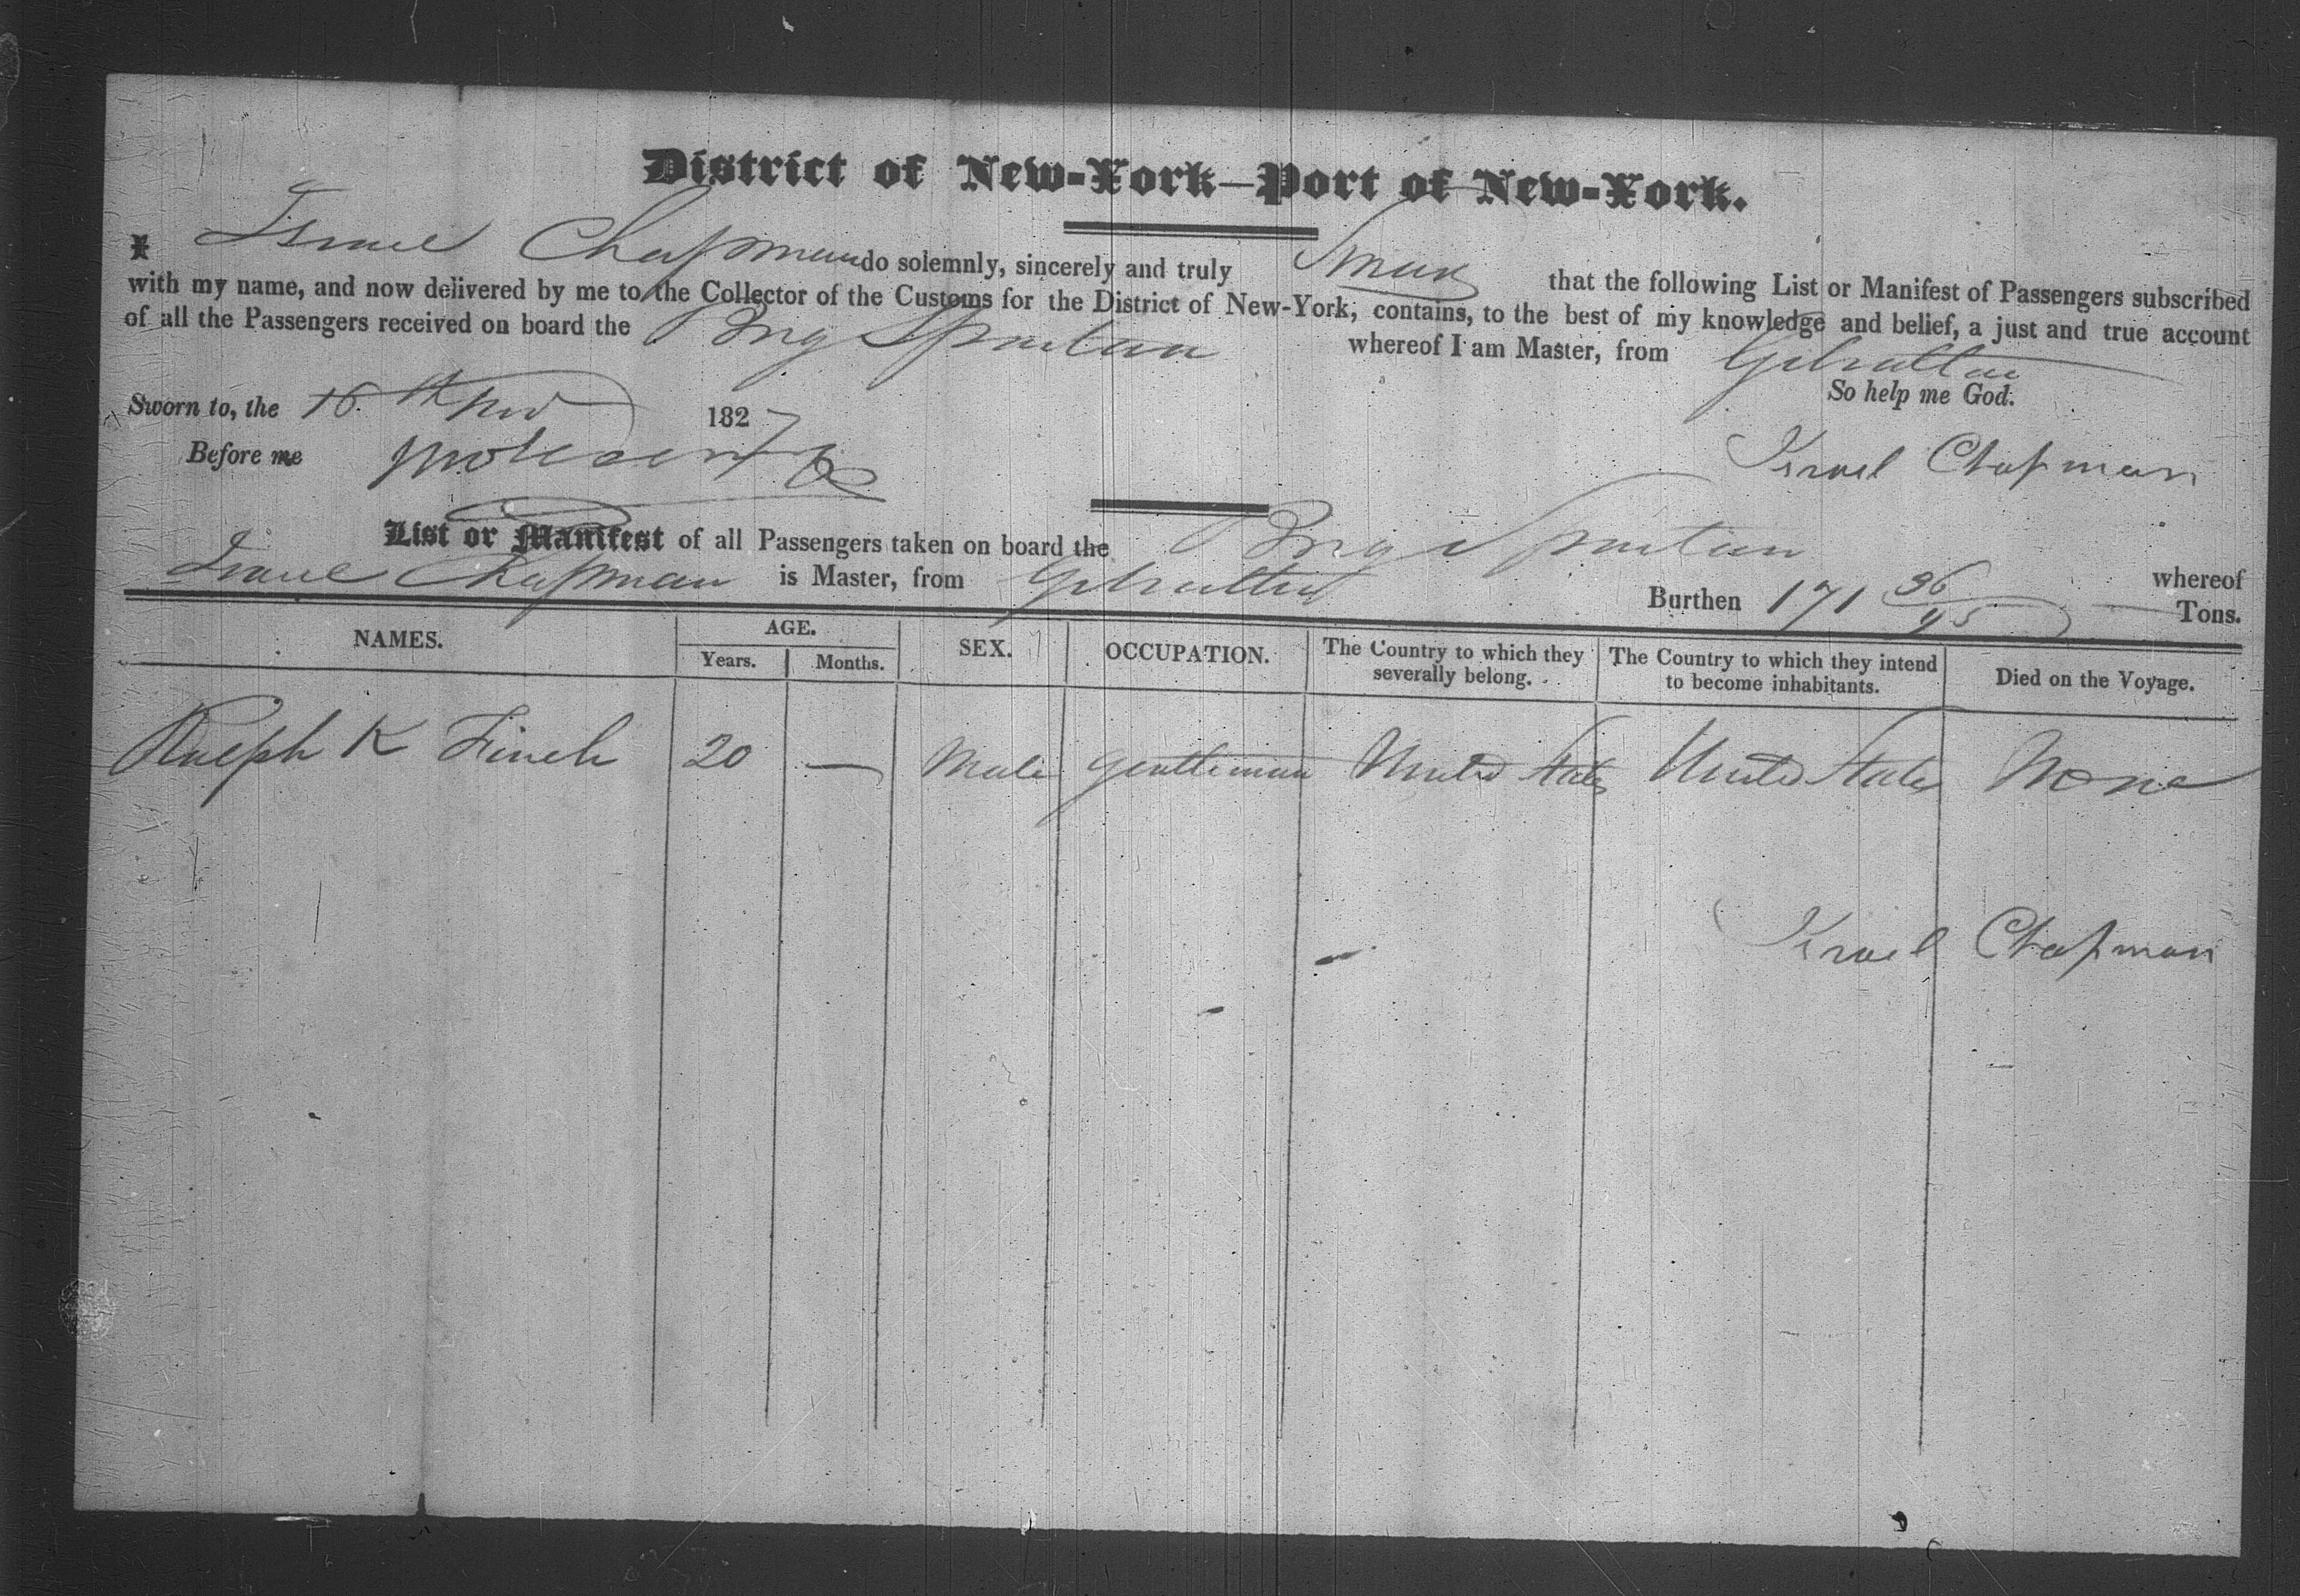 District of New-York—Port of New-York.
I Israel Chapman do solemnly, sincerely and truly Swear that the following List or Manifest of Passengers subscribed
with my name, and now delivered by me to the Collector of the Customs for the District of New-York, contains, to the best of my knowledge and belief, a just and true account
of all the Passengers received on board the Brig Spartan whereof I am Master, from Gibralter
So help me God.
Sworn to, the 16th Nov 1827
Before me
Israel Chapman
List or Manifest of all Passengers taken on board the Brig Spartan whereof
Israel Chapman is Master, from Gibralter Burthen 171 36/95 Tons.
NAMES. AGE. Years. Months. SEX. OCCUPATION. The Country to which they severally belong. The Country to which they intend to become inhabitants. Died on the Voyage.
Ralph K Finch 20 — Male Gentleman United States United States None
Israel Chapman